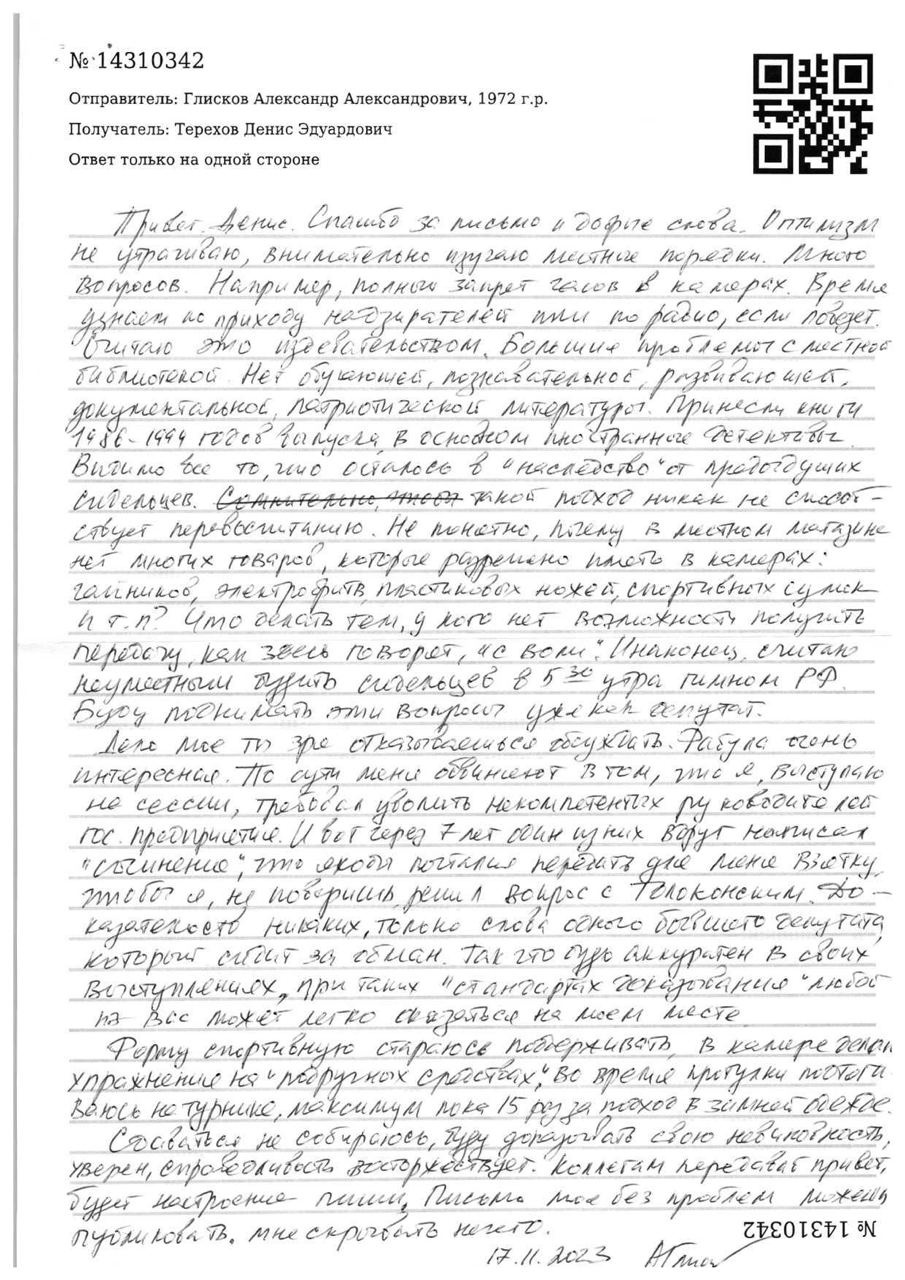 № 14310342
Отправитель: Глисков Александр Александрович, 1972 г.р.
Получатель: Терехов Денис Эдуардович
Ответ только на одной стороне
Привет, Денис. Спасибо за письмо и добрые слова. Оптимизм
не утрачиваю, внимательно изучаю местные порядки. Много
вопросов. Например, полный запрет часов в камерах. Время
узнаем по приходу надзирателей или по радио, если повезет.
Считаю это издевательством. Большие проблемы с местной
библиотекой. Нет обучающей, познавательной, развивающей,
документальной, патриотической литературы. Принесли книги
1986-1994 годов выпуска, в основном иностранные детективы.
Видимо все то, что осталось в "наследство" от предыдущих
сидельцев. Сомнительно, чтобы такой подход никак не способ-
ствует перевоспитанию. Не понятно, почему в местном магазине
нет многих товаров, которые разрешено иметь в камерах:
чайников, электробритв, пластиковых ножей, спортивных сумок
и т.п? Что делать тем, у кого нет возможности получить
передачу, как здесь говорят, "с воли". И наконец, считаю
неуместным будить сидельцев в 5 30 утра гимном РФ.
Буду поднимать эти вопросы уже как депутат.
Дело мое ты зря отказываешься обсуждать. Фабула очень
интересная. По сути меня обвиняют в том, что я, выступая
на сессии, требовал уволить некомпетентных руководителей
гос. предприятия. И вот через 7 лет один из них вдруг написал
"сочинение", что якобы пытался передать для меня взятку,
чтобы я, не поверишь, решил вопрос с Толоконским. До-
казательств никаких, только слова одного бывшего депутата,
который сидит за обман. Так что будь аккуратен в своих
выступлениях, при таких "стандартах доказывания" любой
из вас может легко оказаться на моем месте.
Форму спортивную стараюсь поддерживать, в камере делаю
упражнение на "подручных средствах", во время прогулки подтяги-
ваюсь на турнике, максимум пока 15 раз за подход в зимней одежде.
Сдаваться не собираюсь, буду доказывать свою невиновность,
уверен, справедливость восторжествует. Коллегам передавай привет,
будет настроение пиши. Письмо мое без проблем можешь
публиковать, мне скрывать нечего.
17.11.2023
№ 14310342